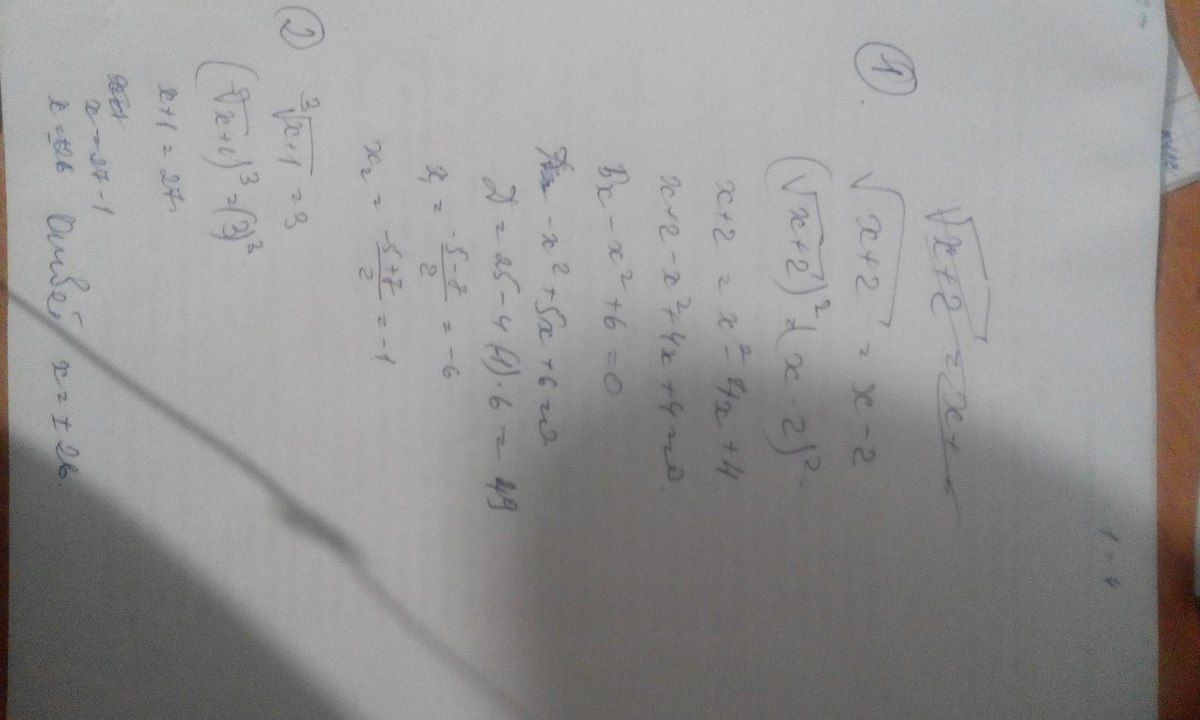 ①
√x+2 = x+
√x+2 = x-2
(√x+2)² = (x-2)²
x+2 = x²-4x+4
x+2-x²+4x+4=0
5x-x²+6=0
-x²+5x+6=0
D = 25-4(-1)·6 = 49
x₁ = -5-7/2 = -6
x₂ = -5+7/2 = -1
②
³√x+1 = 3
(³√x+1)³ = (3)³
x+1 = 27
x = 27-1
x = ±26 Ответ x = ± 26